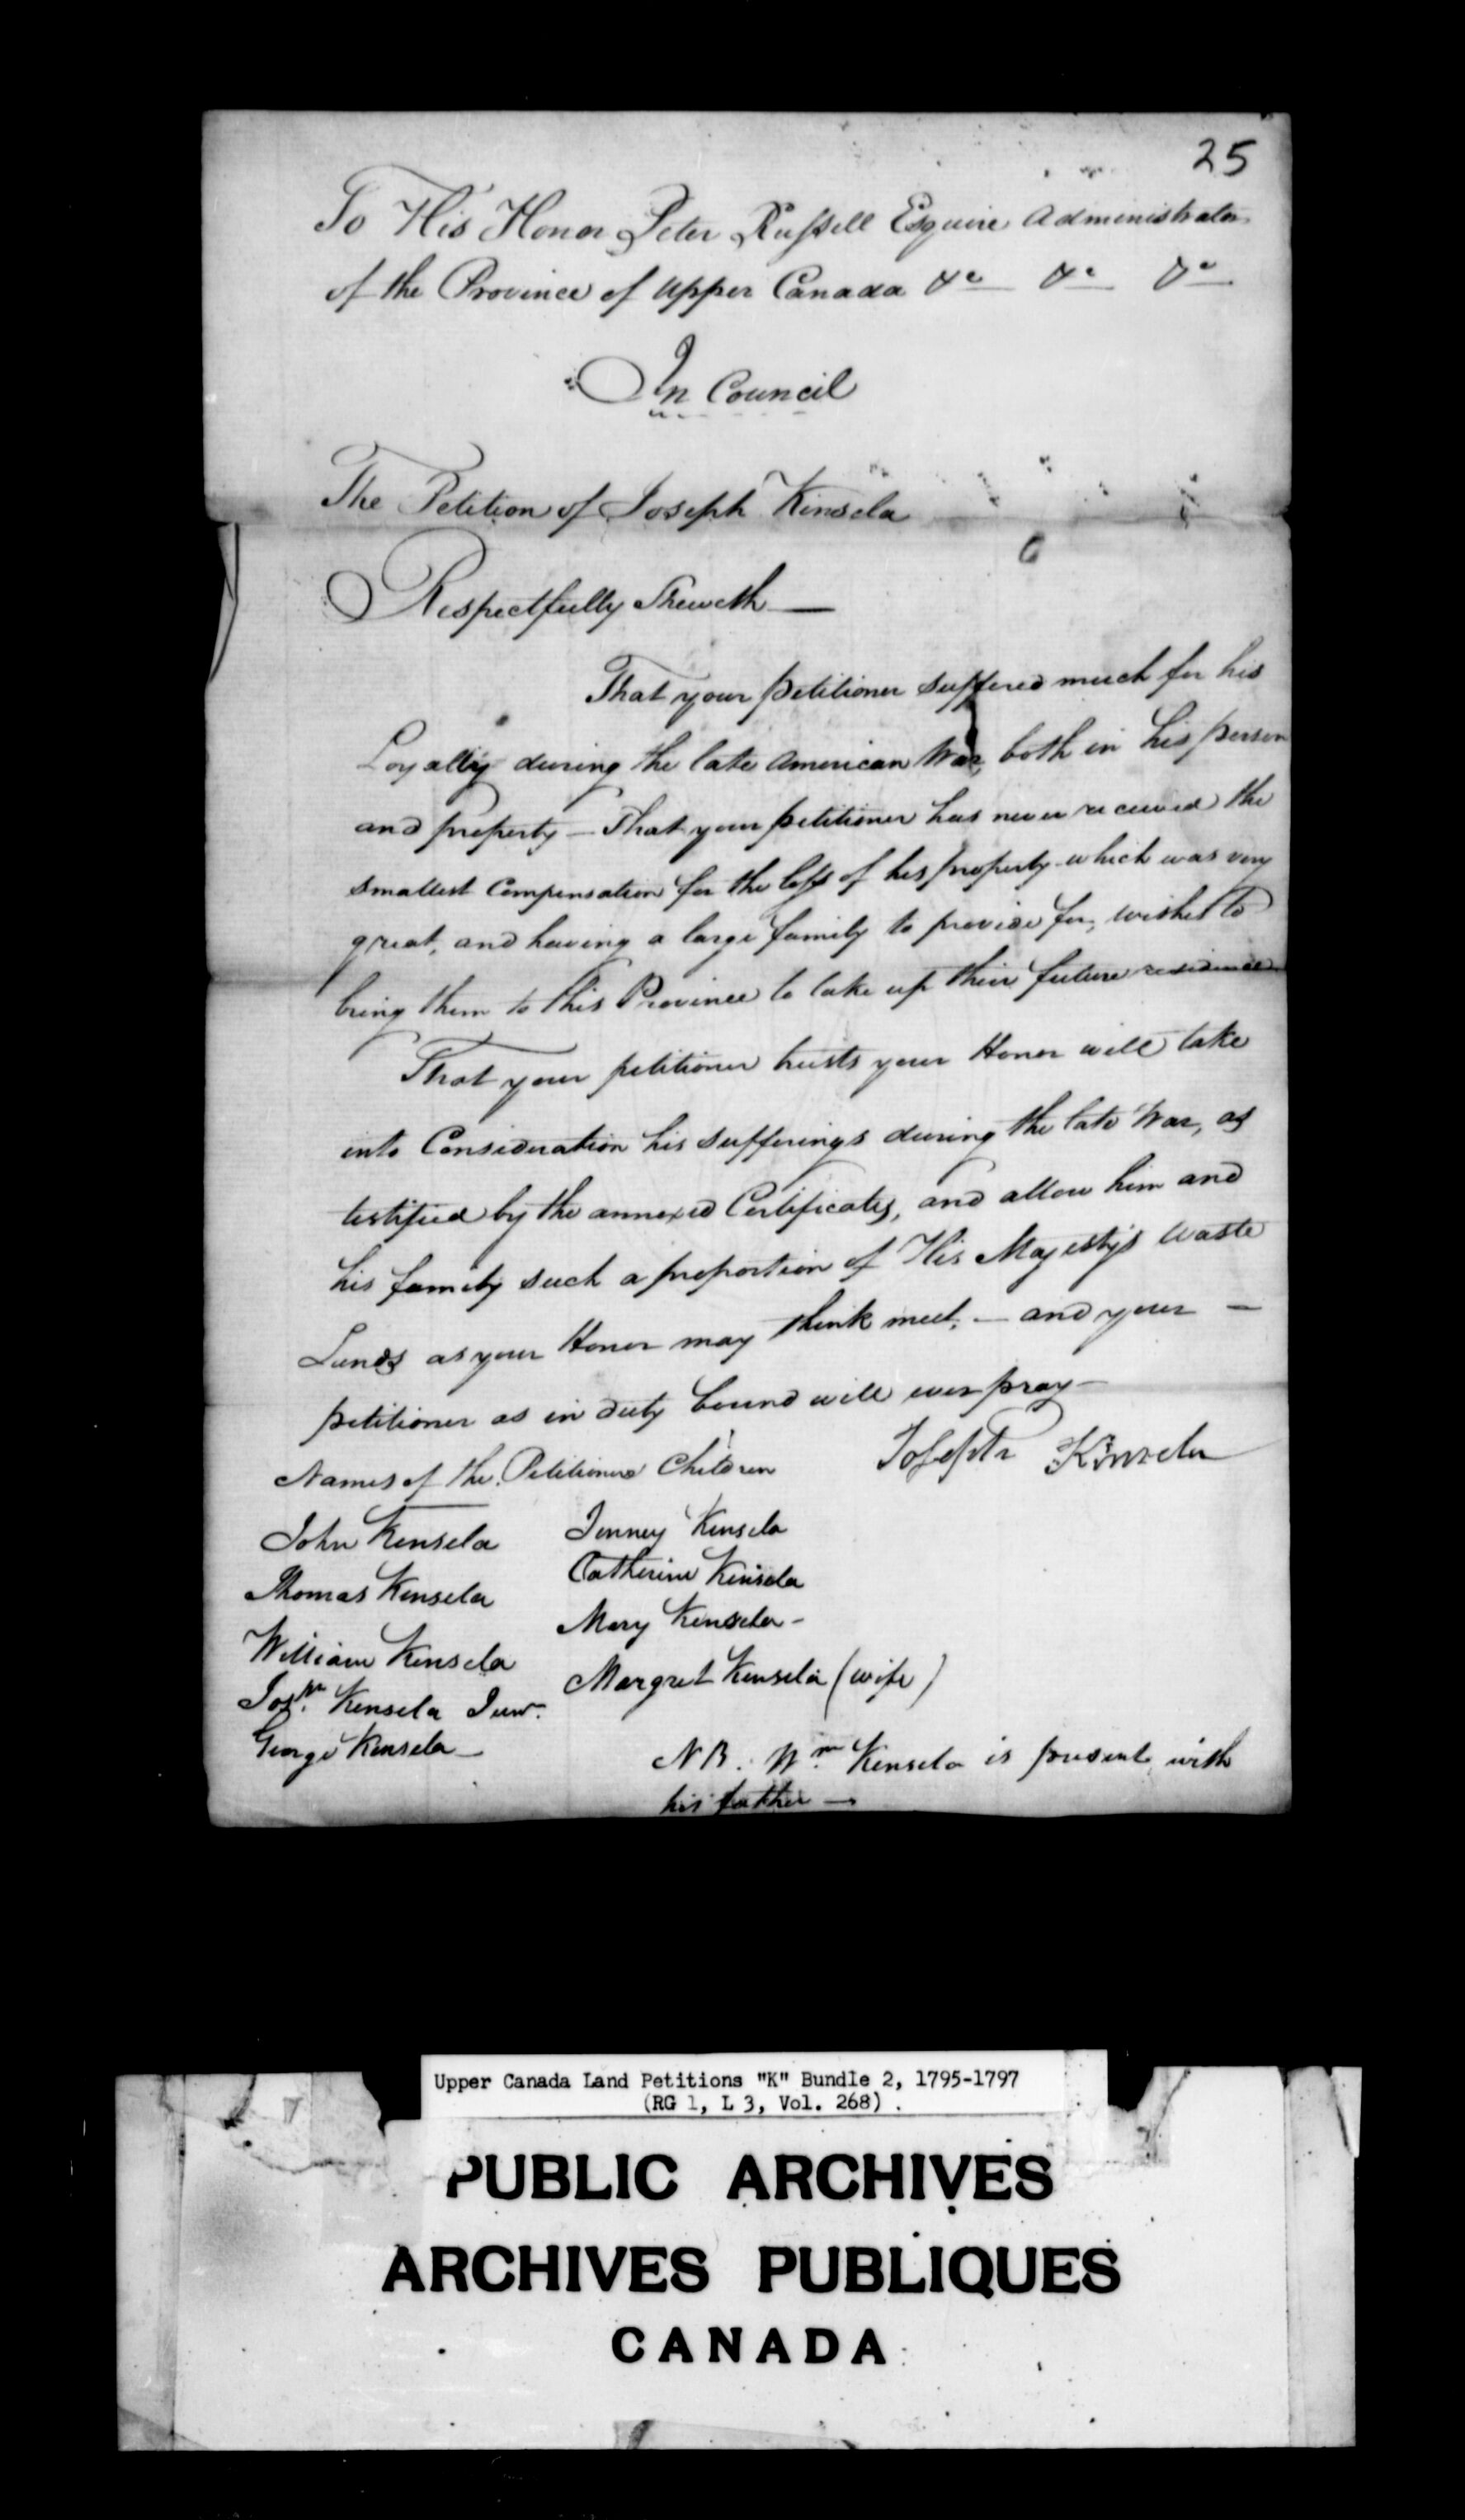 25
To His Honor Peter Russell Esquire Administrator
of the Province of Upper Canada &c &c &c
In Council
The Petition of Joseph Kinsela
Respectfully Sheweth —
That your petitioner suffered much for his
Loyalty during the late American War, both in his person
and property — That your petitioner has never received the
smallest Compensation for the loss of his property which was very
great, and having a large family to provide for, wishes to
bring them to this Province to take up their future residence
That your petitioner trusts your Honor will take
into Consideration his sufferings during the late War, as
testified by the annexed Certificates, and allow him and
his family such a proportion of His Majesty's Waste
Lands as your Honor may think meet, — and your —
petitioner as in duty bound will ever pray —
Joseph Kinsela
Names of the Petitioners Children
John Kensela
Thomas Kensela
William Kensela
Josh. Kensela Junr.
George Kensela —
Jenney Kensela
Catherine Kensela
Mary Kensela -
Margret Kensela (wife)
NB. Wm. Kensela is present with
his father —
Upper Canada Land Petitions "K" Bundle 2, 1795-1797
(RG 1, L 3, Vol. 268) .
PUBLIC ARCHIVES
ARCHIVES PUBLIQUES
CANADA